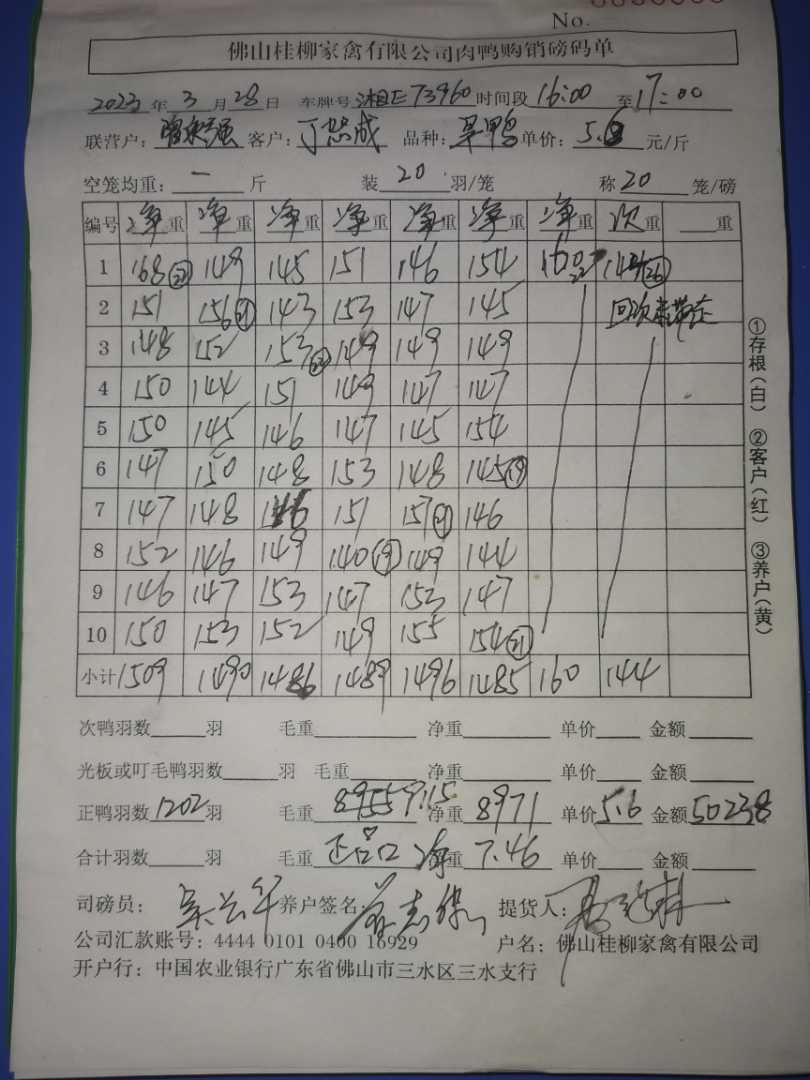 No.
佛山桂柳家禽有限公司肉鸭购销磅码单
2023年3月28日 车牌号 湘E73960 时间段 16:00 至 17:00
联营户: 客户: 品种: 单价: 5.6 元/斤
空笼均重: — 斤 装 20 羽/笼 称 20 笼/磅
编号 净重 净重 净重 净重 净重 净重 净重 次重 重
1 168 149 145 151 146 154 160
2 151 156 143 153 147 145
3 148 152 153 149 149 149
4 150 144 151 149 147 147
5 150 145 146 147 145 154
6 147 150 148 153 148 145 ⑲
7 147 148 146 151 157 146
8 152 146 149 140 ⑲ 149 144
9 146 147 153 147 153 147
10 150 153 152 149 155 154 ㉑
小计 1509 1490 1486 1489 1496 1485 160 144
次鸭羽数 羽 毛重 净重 单价 金额
光板或叮毛鸭羽数 羽 毛重 净重 单价 金额
正鸭羽数 1202 羽 毛重 净重 8971 单价 5.6 金额 50238
合计羽数 羽 毛重 正品 净重 7.46 单价 金额
司磅员: 养户签名: 提货人:
公司汇款账号: 4444 0101 0400 16929 户名: 佛山桂柳家禽有限公司
开户行: 中国农业银行广东省佛山市三水区三水支行
①存根(白) ②客户(红) ③养户(黄)